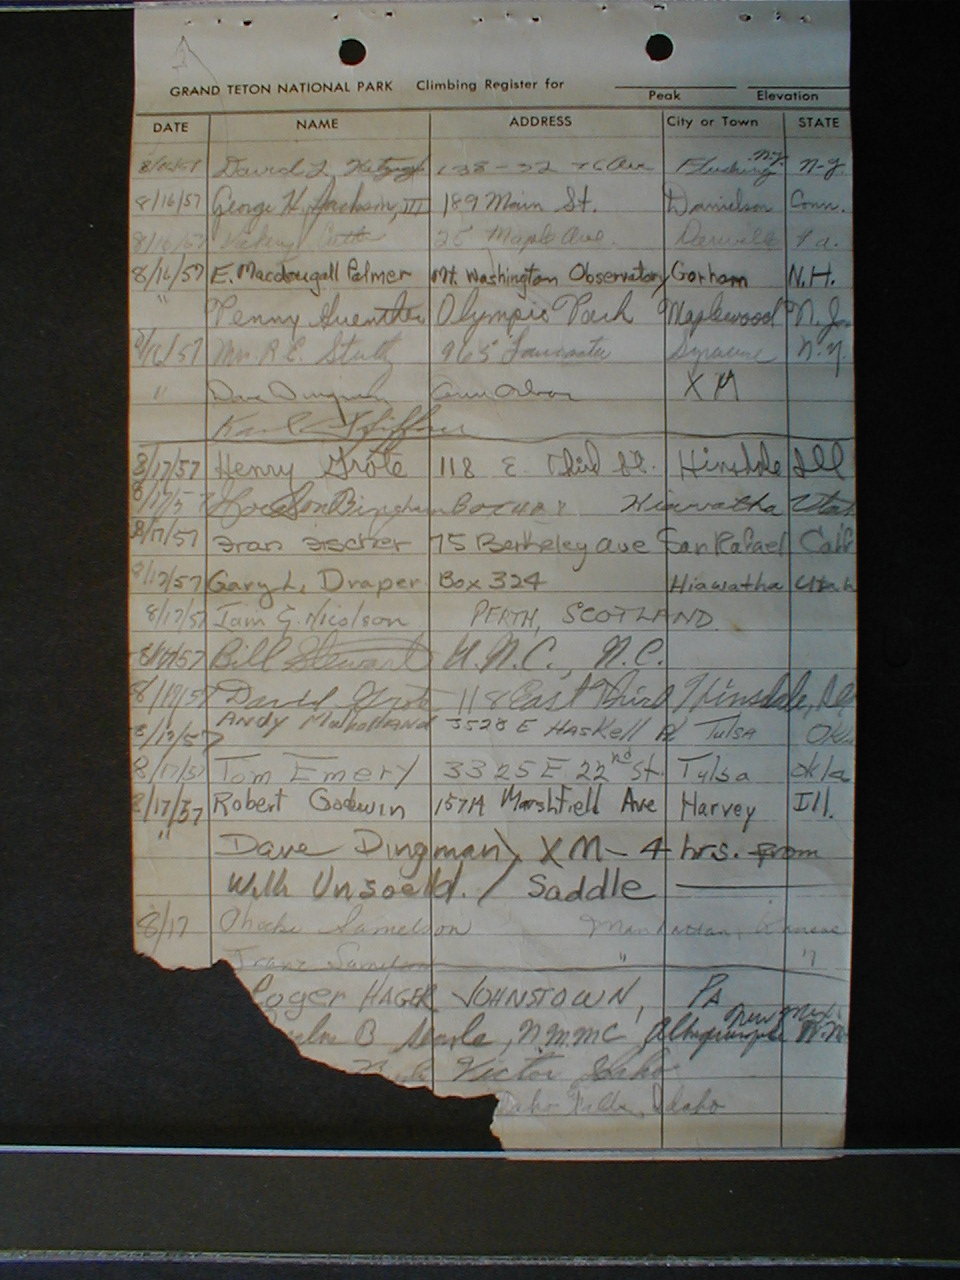 GRAND TETON NATIONAL PARK Climbing Register for
Peak Elevation
DATE NAME ADDRESS City or Town STATE
David L. Ave Flushing N.Y. N.Y.
8/16/57 George H. Jackson, III 189 Main St. Danielson Conn.
8/16/57 25 Maple Ave. Pa.
8/16/57 E. Macdougall Palmer Mt. Washington Observatory Gorham N.H.
" Penny Guenther Olympic Park Maplewood N.J.
8/16/57 Mrs R. E. 965 Lancaster Syracuse N.Y.
" Dave Dingman Ann Arbor X M
Karl
8/17/57 Henry Grote 118 E. Third St. Hinsdale Ill
8/17/57 Bingham Box Hiawatha Utah
8/17/57 Fran Fischer 75 Berkeley Ave San Rafael Calif
8/17/57 Gary L. Draper Box 324 Hiawatha Utah
8/17/57 Iain G. Nicolson PERTH, SCOTLAND
8/17/57 Bill Stewart U.N.C., N.C.
8/17/57 David Grote 118 East Third Hinsdale, Ill
8/17/57 Andy Mulholland 3528 E Haskell Pl Tulsa Okla
8/17/57 Tom Emery 3325 E 22nd St. Tulsa Okla
8/17/57 Robert Godwin Marshfield Ave Harvey Ill.
" Dave Dingman) XM - 4 hrs. from
Willi Unsoeld. / Saddle
8/17 Samelson Manhattan, Kansas
Franz Samelson " "
Roger HAGER JOHNSTOWN, PA
B Searle, N.M.M.C. Albuquerque New Mex.
Victor Idaho
Idaho Falls, Idaho